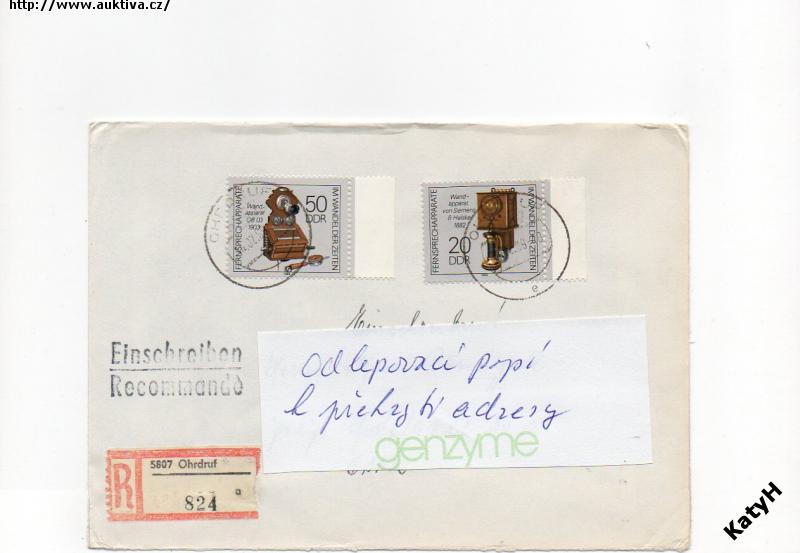 http://www.auktiva.cz/
FERNSPRECHAPPARATE
Wand-
apparat
OB 03
1903
50
DDR
IM WANDEL DER ZEITEN
FERNSPRECHAPPARATE
Wand-
apparat
von Siemens
& Halske
1882
20
DDR
IM WANDEL DER ZEITEN
e
Einschreiben
Recommandé
Odlepovací
k překrytí adresy
genzyme
R
5807 Ohrdruf
824
a
KatyH